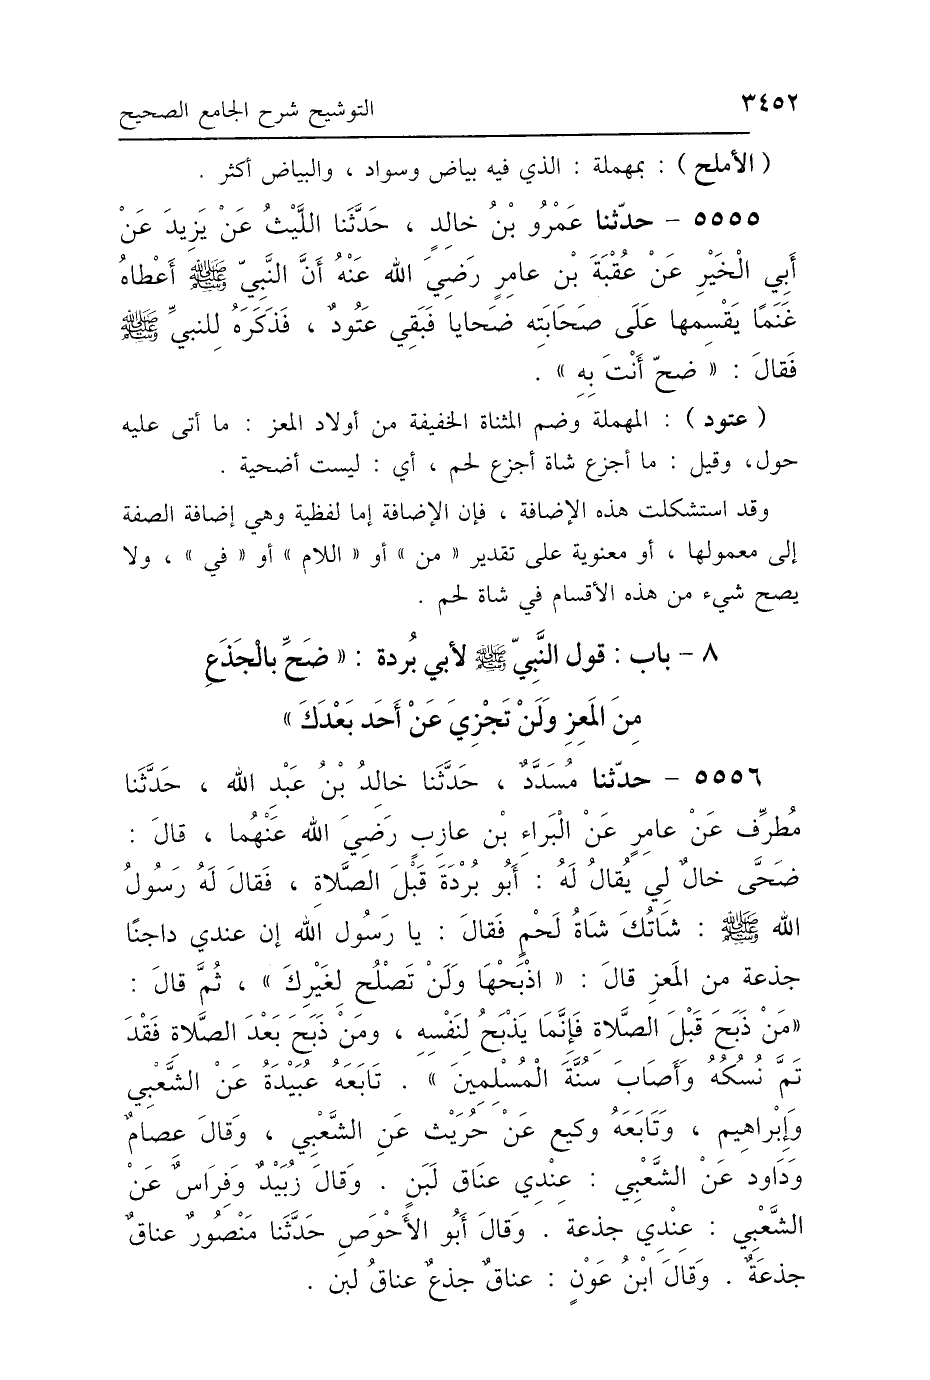 ٣٤٥٢ التوشيح شرح الجامع الصحيح
( الأملح ) : بمهملة : الذي فيه بياض وسواد ، والبياض أكثر .
٥٥٥٥ - حدّثنا عَمْرُو بْنُ خالدٍ ، حَدَّثَنا اللَّيْثُ عَنْ يَزِيدَ عَنْ
أَبِي الْخَيْرِ عَنْ عُقْبَةَ بْنِ عامرٍ رَضِيَ الله عَنْهُ أَنَّ النَّبِيّ ﷺ أَعْطاهُ
غَنَمًا يَقْسِمها عَلَى صَحَابَتِه ضَحايا فَبَقِي عَتُودٌ ، فَذَكَرَهُ لِلنبيِّ ﷺ
فَقالَ : « ضحّ أَنْتَ بِهِ » .
( عتود ) : المهملة وضم المثناة الخفيفة من أولاد المعز : ما أتى عليه
حول، وقيل : ما أجزع شاة أجزع لحم ، أي : ليست أضحية .
وقد استشكلت هذه الإضافة ، فإن الإضافة إما لفظية وهي إضافة الصفة
إلى معمولها ، أو معنوية على تقدير « من » أو « اللام » أو « في » ، ولا
يصح شيء من هذه الأقسام في شاة لحم .
٨ - باب : قول النَّبِيّ ﷺ لأبي بُردة : « ضَحِّ بالْجَذَعِ
مِنَ المَعزِ وَلَنْ تَجْزِيَ عَنْ أَحَد بَعْدَكَ »
٥٥٥٦ - حدّثنا مُسَدَّدٌ ، حَدَّثَنا خالدُ بْنُ عَبْدِ الله ، حَدَّثَنا
مُطرِّف عَنْ عامرٍ عَنْ الْبَراءِ بْنِ عازبٍ رَضِيَ الله عَنْهُما ، قالَ :
ضَحَّى خالٌ لي يُقالُ لَهُ : أَبُو بُرْدَةَ قَبْلَ الصَّلاةِ ، فَقالَ لَهُ رَسُولُ
الله ﷺ : شَاتُكَ شَاةُ لَحْمٍ فَقالَ : يا رَسُول الله إن عندي داجنًا
جذعة من المَعزِ قالَ : « اذْبَحْهَا وَلَنْ تَصْلُح لِغَيْرِكَ » ، ثُمَّ قالَ :
«مَنْ ذَبَحَ قَبْلَ الصَّلاةِ فَإِنَّمَا يَذْبَحُ لِنَفْسِهِ ، ومَنْ ذَبَحَ بَعْدَ الصَّلاةِ فَقَدْ
تَمَّ نُسُكُهُ وَأَصَابَ سُنَّةَ الْمُسْلِمِينَ » . تَابَعَهُ عُبَيْدَةُ عَنْ الشَّعْبي
وَإِبْراهيم ، وَتَابَعَهُ وكيع عَنْ حُرَيْث عَنِ الشَّعْبِي ، وَقالَ عِصامٌ
وَدَاود عَنْ الشَّعْبِي : عِنْدِي عنَاق لَبَنٍ . وَقالَ زُبَيْدٌ وَفِراسٌ عَنْ
الشَّعْبِي : عنْدِي جذعة . وَقالَ أَبُو الأَحْوَصِ حَدَّثَنا مَنْصُورٌ عناقٌ
جذعَةٌ . وَقَالَ ابْنُ عَوْنٍ : عناقٌ جذعٌ عناقُ لبن .